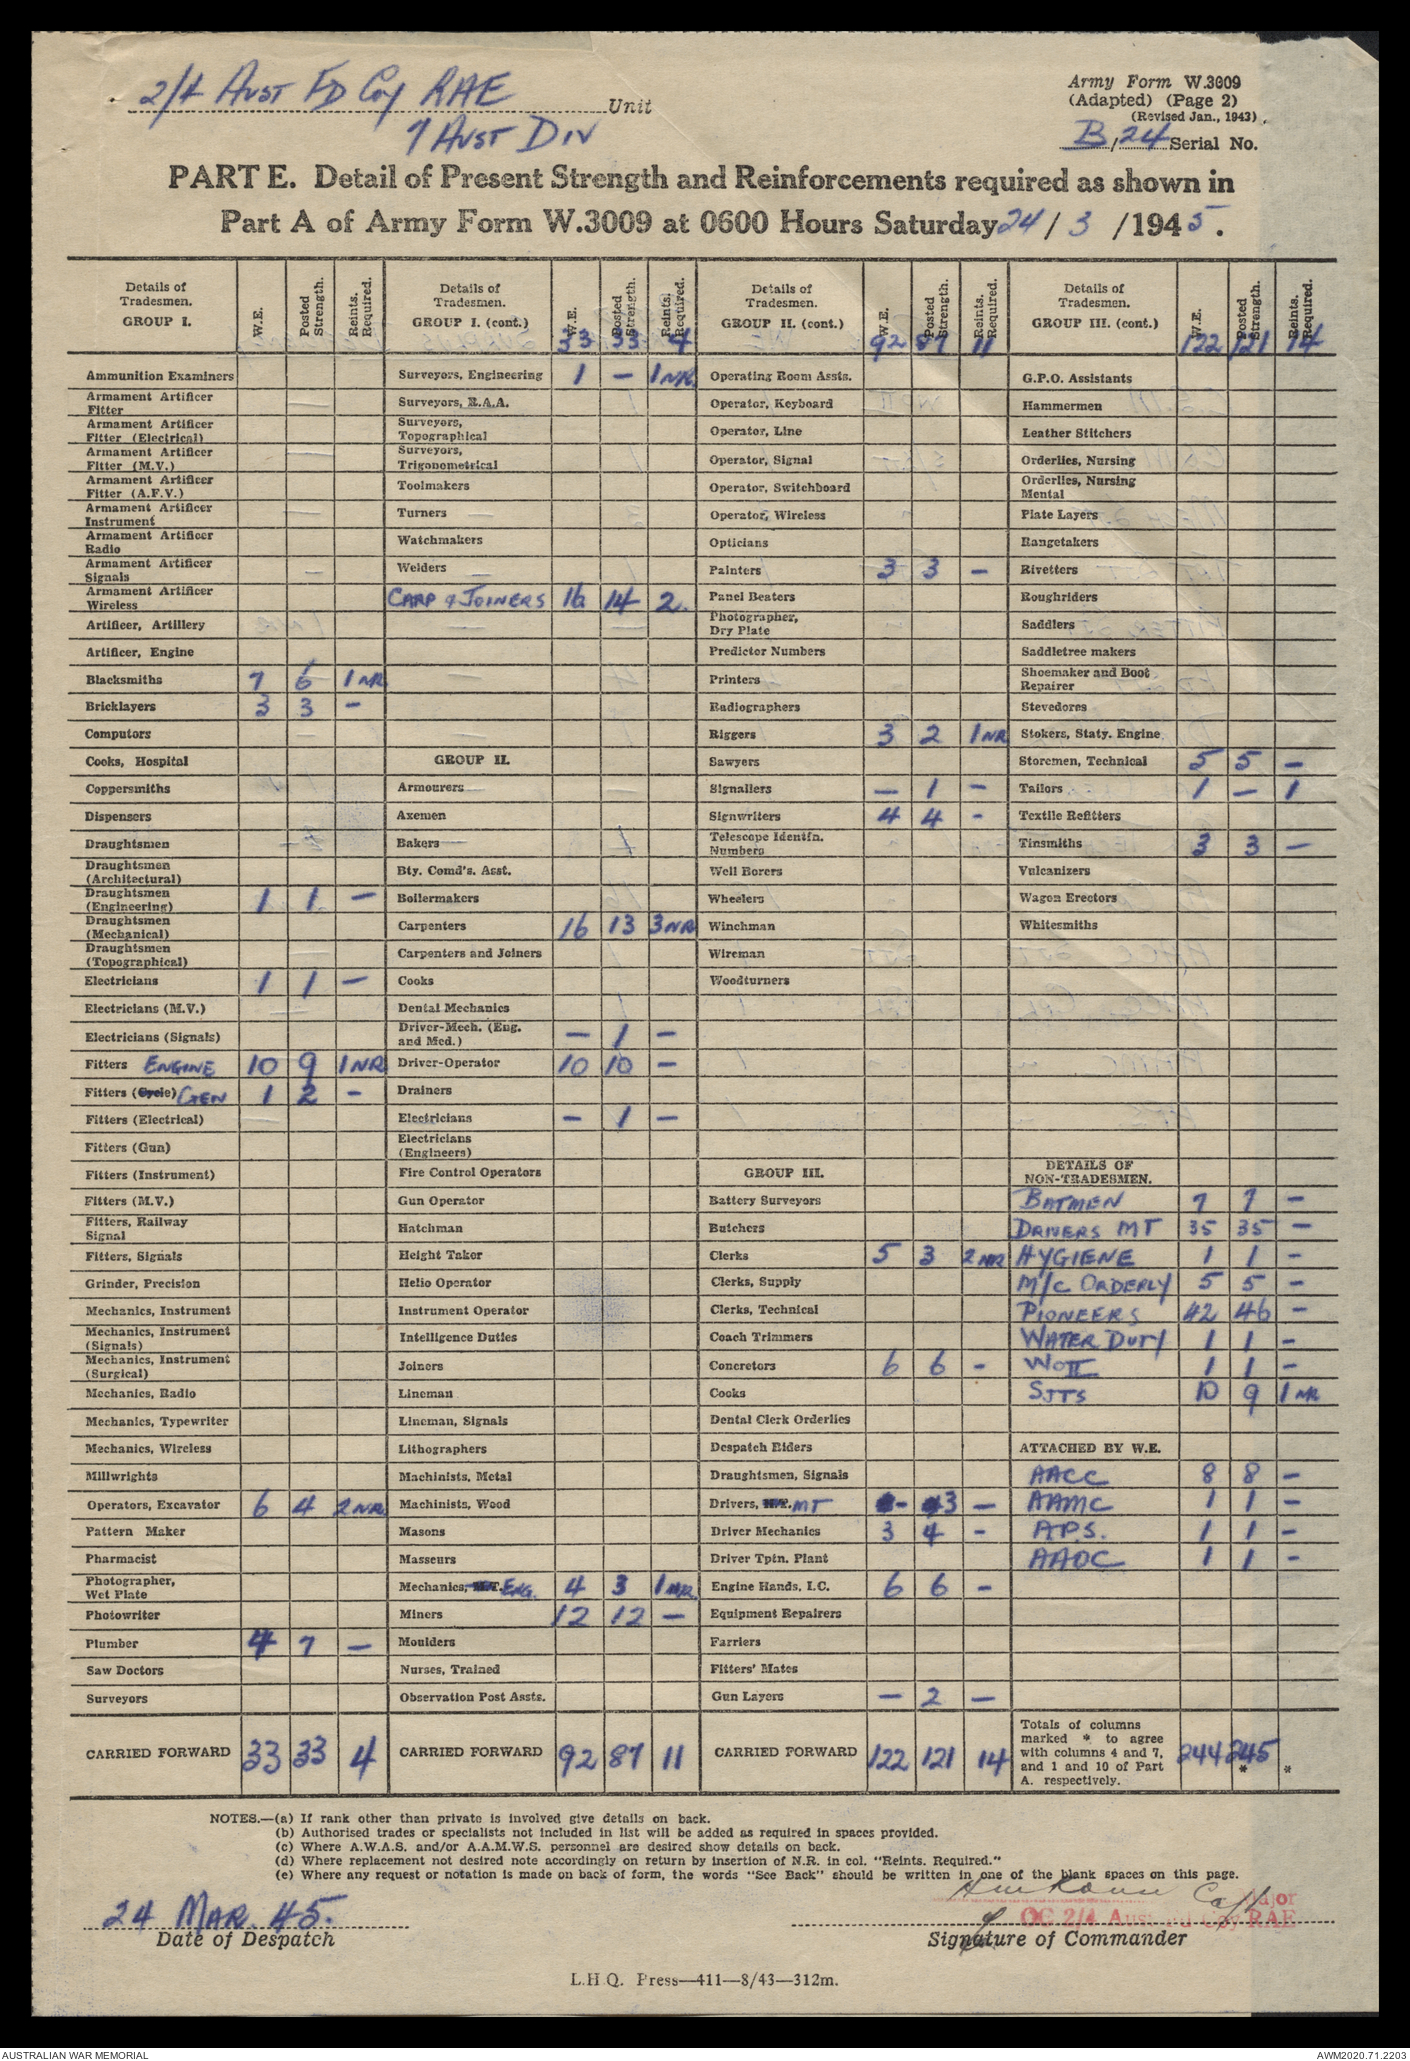 2/4 AUST FD Coy RAE Unit
7 AUST DIV
Army Form W.3009
(Adapted) (Page 2)
(Revised Jan., 1943)
B/24 Serial No.
PART E. Detail of Present Strength and Reinforcements required as shown in
Part A of Army Form W.3009 at 0600 Hours Saturday 24/3/1945.
Details of Tradesmen. GROUP I. W.E. Posted Strength. Reints. Required.
Ammunition Examiners
Armament Artificer Fitter
Armament Artificer Fitter (Electrical)
Armament Artificer Fitter (M.V.)
Armament Artificer Fitter (A.F.V.)
Armament Artificer Instrument
Armament Artificer Radio
Armament Artificer Signals
Armament Artificer Wireless
Artificer, Artillery
Artificer, Engine
Blacksmiths 7 6 1 NR
Bricklayers 3 3 -
Computors
Cooks, Hospital
Coppersmiths
Dispensers
Draughtsmen
Draughtsmen (Architectural)
Draughtsmen (Engineering) 1 1 -
Draughtsmen (Mechanical)
Draughtsmen (Topographical)
Electricians 1 1 -
Electricians (M.V.)
Electricians (Signals)
Fitters ENGINE 10 9 1 NR
Fitters (Cycle) GEN 1 2 -
Fitters (Electrical)
Fitters (Gun)
Fitters (Instrument)
Fitters (M.V.)
Fitters, Railway Signal
Fitters, Signals
Grinder, Precision
Mechanics, Instrument
Mechanics, Instrument (Signals)
Mechanics, Instrument (Surgical)
Mechanics, Radio
Mechanics, Typewriter
Mechanics, Wireless
Millwrights
Operators, Excavator 6 4 2 NR
Pattern Maker
Pharmacist
Photographer, Wet Plate
Photowriter
Plumber 4 7 -
Saw Doctors
Surveyors
CARRIED FORWARD 33 33 4
Details of Tradesmen. GROUP I. (cont.) W.E. Posted Strength. Reints. Required.
33 33 4
Surveyors, Engineering 1 - 1 NR
Surveyors, R.A.A.
Surveyors, Topographical
Surveyors, Trigonometrical
Toolmakers
Turners
Watchmakers
Welders
CARP & JOINERS 16 14 2.
GROUP II.
Armourers
Axemen
Bakers
Bty. Comd's. Asst.
Boilermakers
Carpenters 16 13 3 NR
Carpenters and Joiners
Cooks
Dental Mechanics
Driver-Mech. (Eng. and Med.) - 1 -
Driver-Operator 10 10 -
Drainers
Electricians - 1 -
Electricians (Engineers)
Fire Control Operators
Gun Operator
Hatchman
Height Taker
Helio Operator
Instrument Operator
Intelligence Duties
Joiners
Lineman
Lineman, Signals
Lithographers
Machinists, Metal
Machinists, Wood
Masons
Masseurs
Mechanics, M.T. ENG. 4 3 1 NR.
Miners 12 12 -
Moulders
Nurses, Trained
Observation Post Assts.
CARRIED FORWARD 92 87 11
Details of Tradesmen. GROUP II. (cont.) W.E. Posted Strength. Reints. Required.
92 87 11
Operating Room Assts.
Operator, Keyboard
Operator, Line
Operator, Signal
Operator, Switchboard
Operator, Wireless
Opticians
Painters 3 3 -
Panel Beaters
Photographer, Dry Plate
Predictor Numbers
Printers
Radiographers
Riggers 3 2 1 NR
Sawyers
Signallers - 1 -
Signwriters 4 4 -
Telescope Identfn. Numbers
Well Borers
Wheelers
Winchman
Wireman
Woodturners
GROUP III.
Battery Surveyors
Butchers
Clerks 5 3 2 NR
Clerks, Supply
Clerks, Technical
Coach Trimmers
Concretors 6 6 -
Cooks
Dental Clerk Orderlies
Despatch Riders
Draughtsmen, Signals
Drivers, MT - 3 -
Driver Mechanics 3 4 -
Driver Tptn. Plant
Engine Hands, I.C. 6 6 -
Equipment Repairers
Farriers
Fitters' Mates
Gun Layers - 2 -
CARRIED FORWARD 122 121 14
Details of Tradesmen. GROUP III. (cont.) W.E. Posted Strength. Reints. Required.
122 121 14
G.P.O. Assistants
Hammermen
Leather Stitchers
Orderlies, Nursing
Orderlies, Nursing Mental
Plate Layers
Rangetakers
Rivetters
Roughriders
Saddlers
Saddletree makers
Shoemaker and Boot Repairer
Stevedores
Stokers, Staty. Engine
Storemen, Technical 5 5 -
Tailors 1 - 1
Textile Refitters
Tinsmiths 3 3 -
Vulcanizers
Wagon Erectors
Whitesmiths
DETAILS OF NON-TRADESMEN.
BATMEN 7 7 -
DRIVERS MT 35 35 -
HYGIENE 1 1 -
M/C ORDERLY 5 5 -
PIONEERS 42 46 -
WATER DUTY 1 1 -
WO II 1 1 -
SJTS 10 9 1 NR
ATTACHED BY W.E.
AACC 8 8 -
AAMC 1 1 -
A.P.S. 1 1 -
AAOC 1 1 -
Totals of columns marked * to agree with columns 4 and 7, and 1 and 10 of Part A. respectively. 244 245 * *
NOTES.—(a) If rank other than private is involved give details on back.
(b) Authorised trades or specialists not included in list will be added as required in spaces provided.
(c) Where A.W.A.S. and/or A.A.M.W.S. personnel are desired show details on back.
(d) Where replacement not desired note accordingly on return by insertion of N.R. in col. "Reints. Required."
(e) Where any request or notation is made on back of form, the words "See Back" should be written in one of the blank spaces on this page.
24 MAR. 45.
Date of Despatch
Capt
Major
OC 2/4 Aust Fd Coy RAE
Signature of Commander
L.H.Q. Press—411—8/43—312m.
AUSTRALIAN WAR MEMORIAL
AWM2020.71.2203